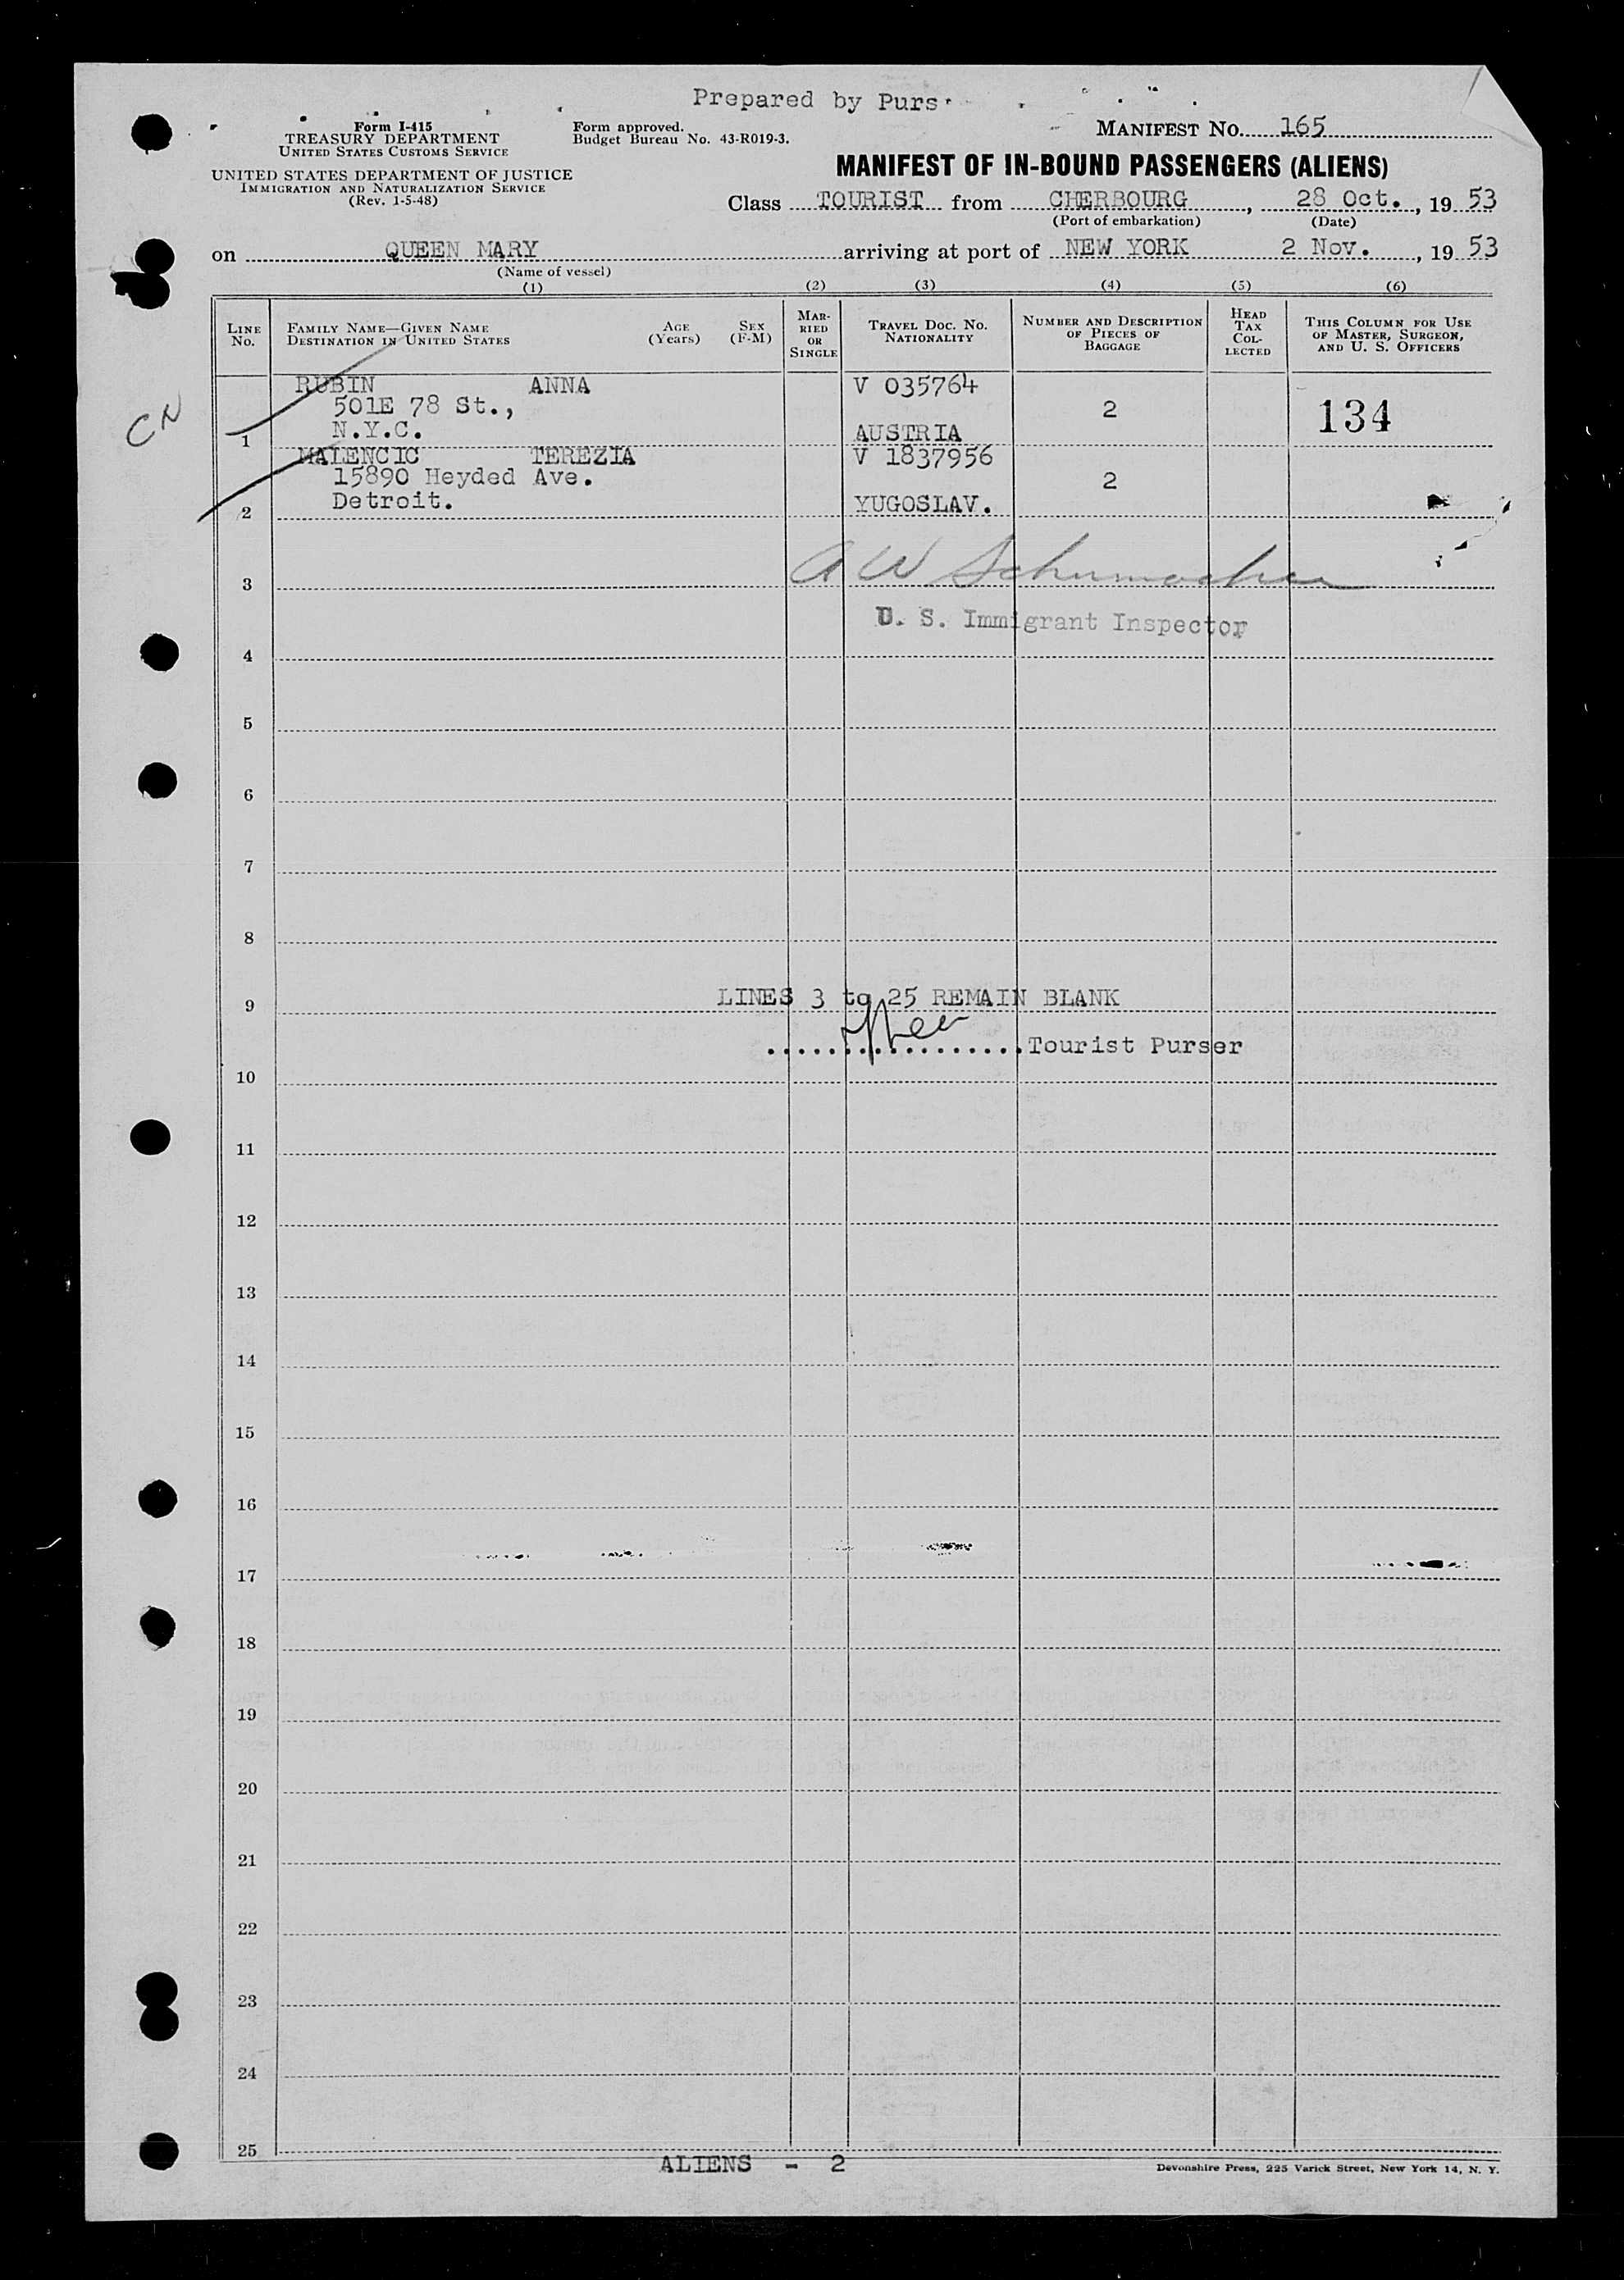 Prepared by Purs
Form I-415
TREASURY DEPARTMENT
UNITED STATES CUSTOMS SERVICE
UNITED STATES DEPARTMENT OF JUSTICE
IMMIGRATION AND NATURALIZATION SERVICE
(Rev. 1-5-48)
Form approved.
Budget Bureau No. 43-R019-3.
MANIFEST NO. 165
MANIFEST OF IN-BOUND PASSENGERS (ALIENS)
Class TOURIST from CHERBOURG, 28 Oct., 19 53
(Port of embarkation) (Date)
on QUEEN MARY arriving at port of NEW YORK 2 Nov., 19 53
(Name of vessel)
(1) (2) (3) (4) (5) (6)
LINE NO.
FAMILY NAME—GIVEN NAME
DESTINATION IN UNITED STATES
AGE (Years)
SEX (F-M)
MARRIED OR SINGLE
TRAVEL DOC. NO.
NATIONALITY
NUMBER AND DESCRIPTION OF PIECES OF BAGGAGE
HEAD TAX COLLECTED
THIS COLUMN FOR USE OF MASTER, SURGEON, AND U. S. OFFICERS
CN
RUBIN ANNA V 035764
501E 78 St., 2 134
1 N.Y.C. AUSTRIA
MALENCIC TEREZIA V 1837956
15890 Heyded Ave. 2
2 Detroit. YUGOSLAV.
3 A W Schumacher
U. S. Immigrant Inspector
4
5
6
7
8
9 LINES 3 to 25 REMAIN BLANK
Tourist Purser
10
11
12
13
14
15
16
17
18
19
20
21
22
23
24
25
ALIENS - 2
Devonshire Press, 225 Varick Street, New York 14, N. Y.